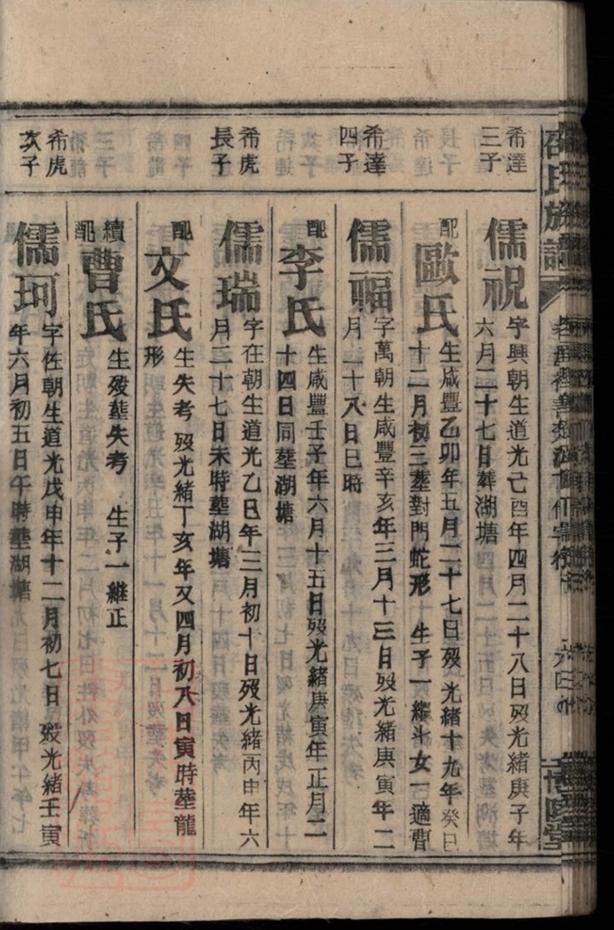 邵氏族譜
博陵堂
希達
三子
儒祝
字興朝生道光己酉年四月二十八日歿光緒庚子年
六月二十七日葬湖塘
配
歐氏
生咸豐乙卯年五月二十七日歿光緒十九年癸巳
十二月初三塟對門蛇形 生子一維斗女一適曹
希達
四子
儒福
字萬朝生咸豐辛亥年三月十三日歿光緒庚寅年二
月二十八日巳時
配
李氏
生咸豐壬子年六月十五日歿光緒庚寅年正月二
十四日同塟湖塘
希虎
長子
儒瑞
字在朝生道光乙巳年三月初十日歿光緒丙申年六
月二十七日未時塟湖塘
配
文氏
生失考 歿光緒丁亥年又四月初八日寅時塟龍
形
續
配
曹氏
生歿塟失考 生子一維正
希虎
次子
儒珂
字佐朝生道光戊申年十二月初七日 歿光緒壬寅
年六月初五日午時塟湖塘